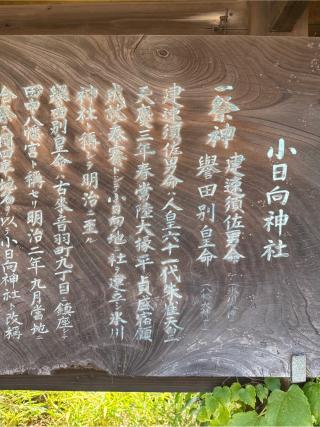 小日向神社
一祭神
建速須佐男命
誉田別皇命
建速須佐男命ハ人皇六十一代朱雀天皇
天慶三年春常陸大掾平貞盛宿願
成就奉賽トシテ小日向ノ地ニ社ヲ建立シ氷川
神社ト稱シテ明治ニ至ル
譽田別皇命ハ古來音羽町九丁目ニ鎮座シ
田中八幡宮ト稱セリ明治二年九月當地ニ
合祀シ小日向神社ト改稱